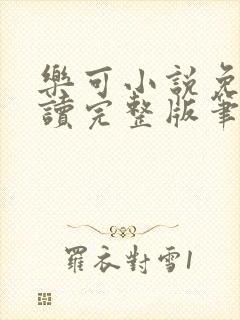 樂可小說免
讀完整版筆
羅衣對雪1